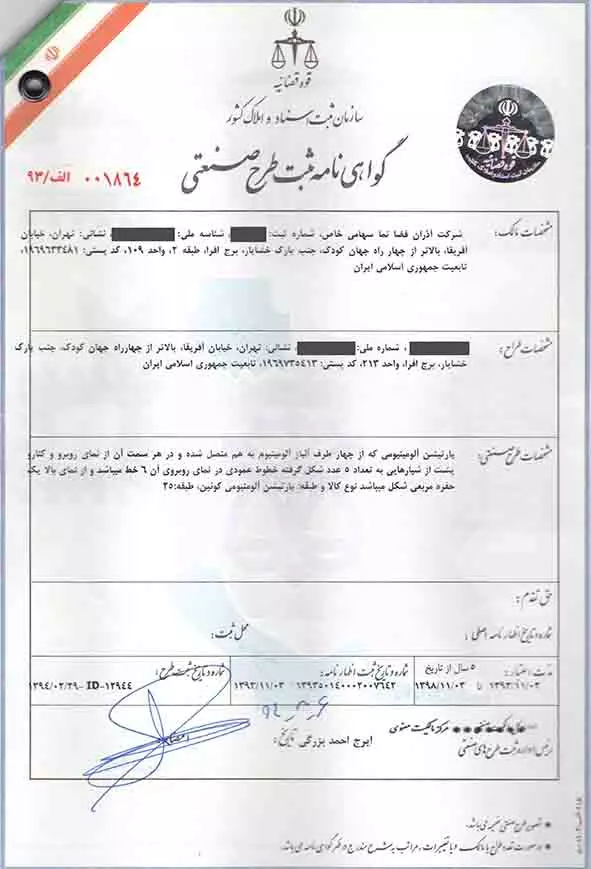 قوه قضائیه
سازمان ثبت اسناد و املاک کشور
گواهی نامه ثبت طرح صنعتی
۰۰۱۸۶۴ الف/۹۳
مشخصات مالک:
شرکت آذران فضا نما سهامی خاص، شماره ثبت: ، شناسه ملی: ، نشانی: تهران، خیابان
آفریقا، بالاتر از چهار راه جهان کودک، جنب پارک خشایار، برج افرا، طبقه ۲، واحد ۱۰۹، کد پستی: ۱۹۶۹۶۳۳۴۸۱،
تابعیت جمهوری اسلامی ایران
مشخصات طراح:
، شماره ملی: ، نشانی: تهران، خیابان آفریقا، بالاتر از چهارراه جهان کودک، جنب پارک
خشایار، برج افرا، واحد ۲۱۳، کد پستی: ۱۹۶۹۷۳۵۴۱۳، تابعیت جمهوری اسلامی ایران
مشخصات طرح صنعتی:
پارتیشن آلومینیومی که از چهار طرف آلیاژ آلومینیوم به هم متصل شده و در هر سمت آن از نمای روبرو و کنارو
پشت از شیارهایی به تعداد ۵ عدد شکل گرفته خطوط عمودی در نمای روبروی آن ۶ خط میباشد و از نمای بالا یک
حفره مربعی شکل میباشد نوع کالا و طبقه: پارتیشن آلومینیومی کوئین، طبقه:۲۵
حق تقدم:
شماره و تاریخ اظهار نامه اصلی:
محل ثبت:
مدت اعتبار: ۵ سال از تاریخ
۱۳۹۳/۱۱/۰۳ تا ۱۳۹۸/۱۱/۰۳
شماره و تاریخ ثبت اظهار نامه:
۱۳۹۳۵۰۱۴۰۰۰۲۰۰۷۶۴۲ ۱۳۹۳/۱۱/۰۳
شماره و تاریخ ثبت طرح:
ID-۱۲۹۴۴ -۱۳۹۴/۰۲/۲۹
مرکز مالکیت معنوی
رئیس اداره ثبت طرح های صنعتی
ایرج احمد بزرگی
تاریخ:
امضاء
تصویر طرح صنعتی ضمیمه می باشد.
در صورت تعدد طرح یا مالک و یا تغییرات، مراتب به شرح مندرج در ظهر گواهی نامه می باشد.